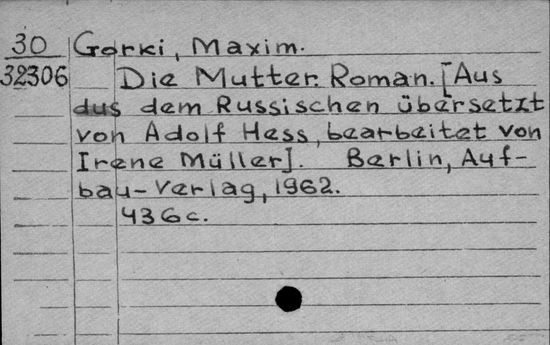 30 Gorki, Maxim.
32306 Die Mutter. Roman. [Aus
dus dem Russischen übersetzt
von Adolf Hess, bearbeitet von
Irene Müller]. Berlin, Auf-
bau-Verlag, 1962.
436c.